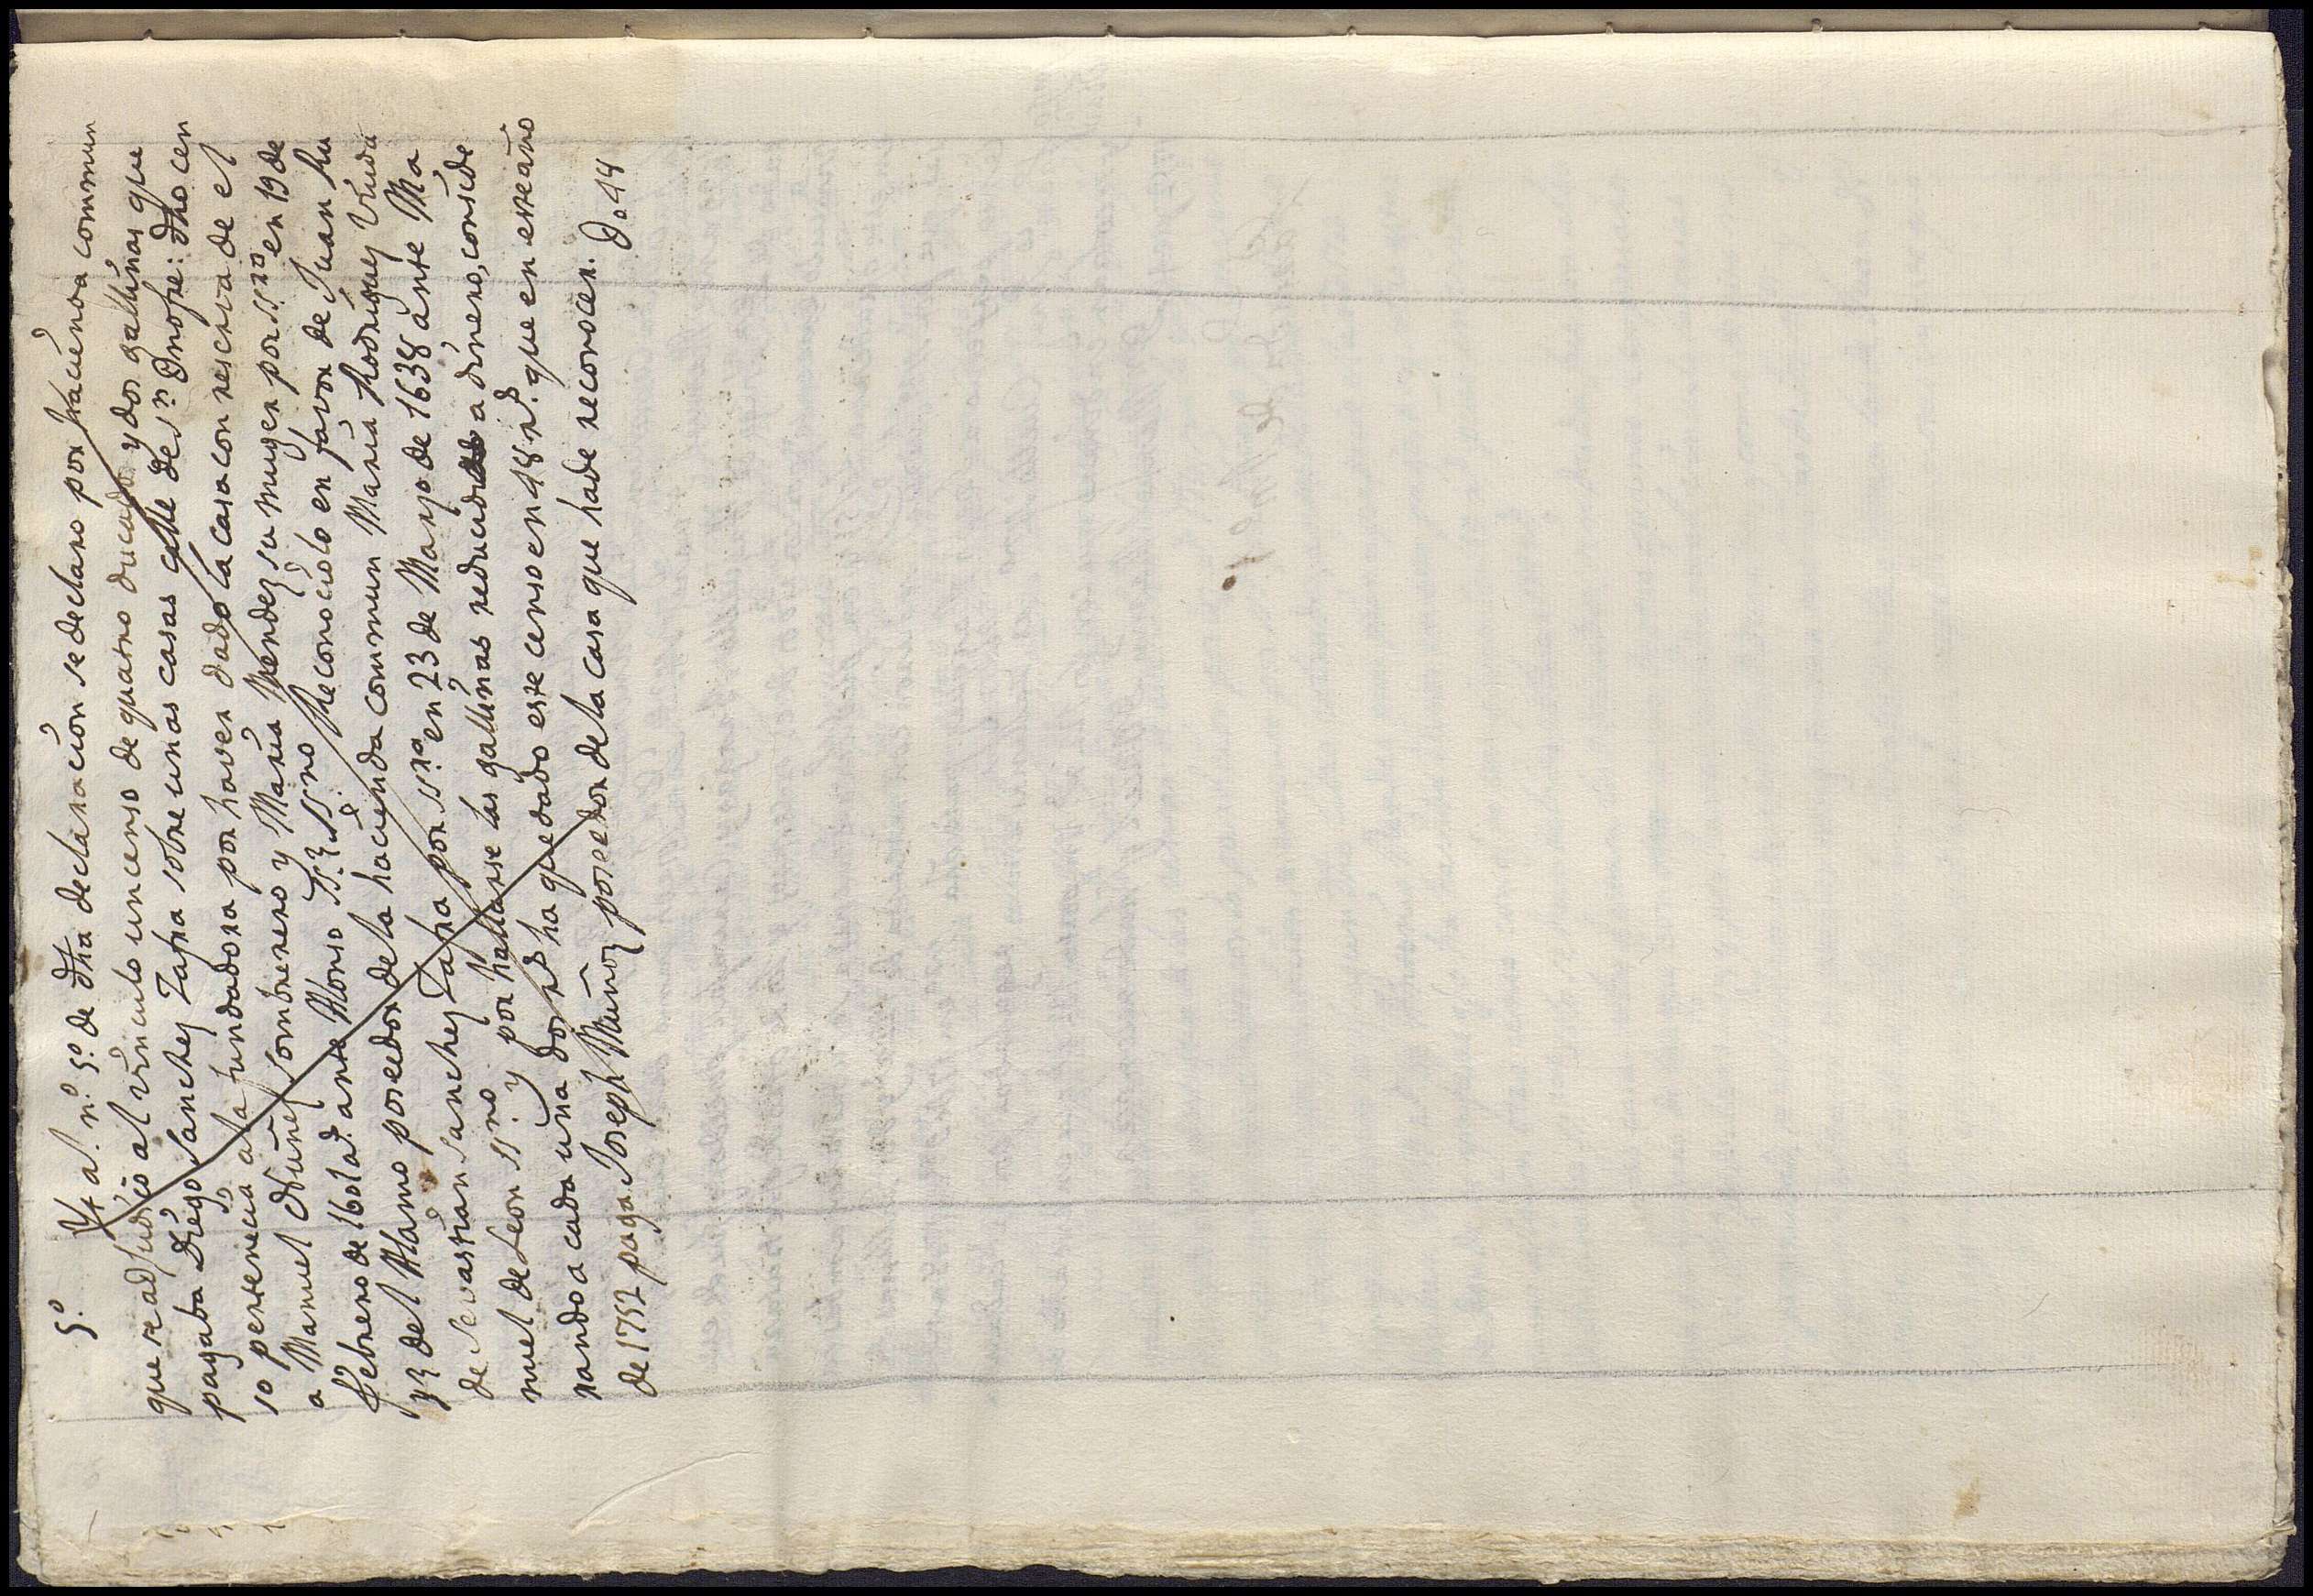 5º. Yt. al. nº. 5º. de dha declaracion se declaro por hacienda commun
que se adjudico al vinculo un censo de quatro ducados y dos gallinas que
pagaba Diego Sanchez Zafra sobre unas casas calle de Sn. Onofre: dho cen
so pertenecia a la fundadora por haver dado la casa con reserva de el
a Manuel Nuñez sombrerero y Maria Mendez su muger por ssra. en 19 de
febrero de 1601 ad. ante Alonso ssno. Reconociolo en favor de Juan Ru
yz del Alamo poseedor de la hacienda commun Maria Rodriguez viuda
de Sevastian Sanchez Zafra por ssra. en 23 de Marzo de 1638 ante Ma
nuel de Leon ssno. y por hallarse las gallinas reducidas a dinero, conside
rando a cada una dos rs ha quedado este censo en 48 rs. que en este año
de 1752 paga Joseph Muñoz poseedor de la casa que ha de reconocer. D. 44